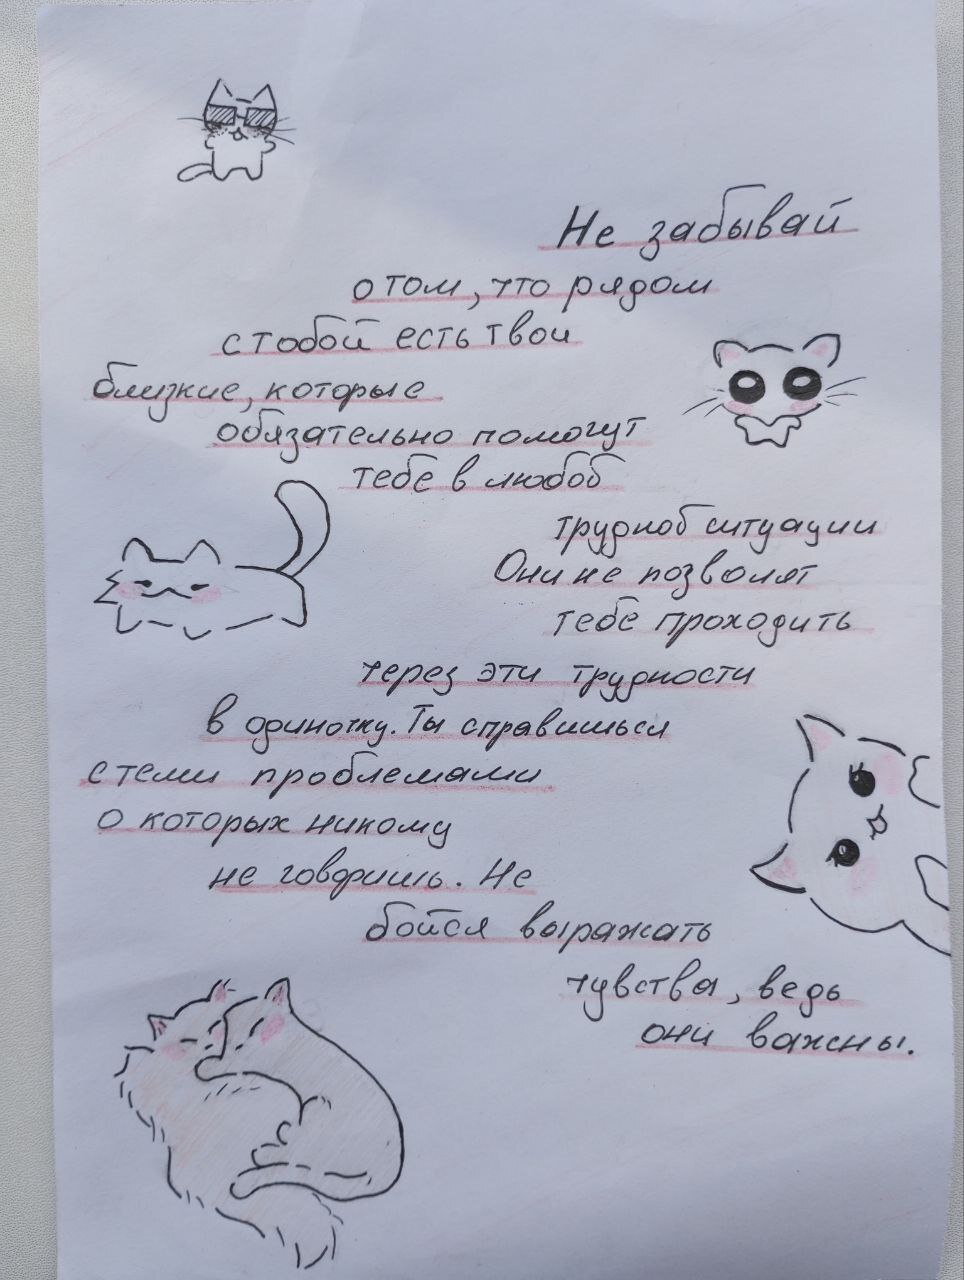 Не забывай
о том, что рядом
с тобой есть твои
близкие, которые
обязательно помогут
тебе в любой
трудной ситуации
Они не позволят
тебе проходить
через эти трудности
в одиночку. Ты справишься
с теми проблемами
о которых никому
не говоришь. Не
бойся выражать
чувства, ведь
они важны.